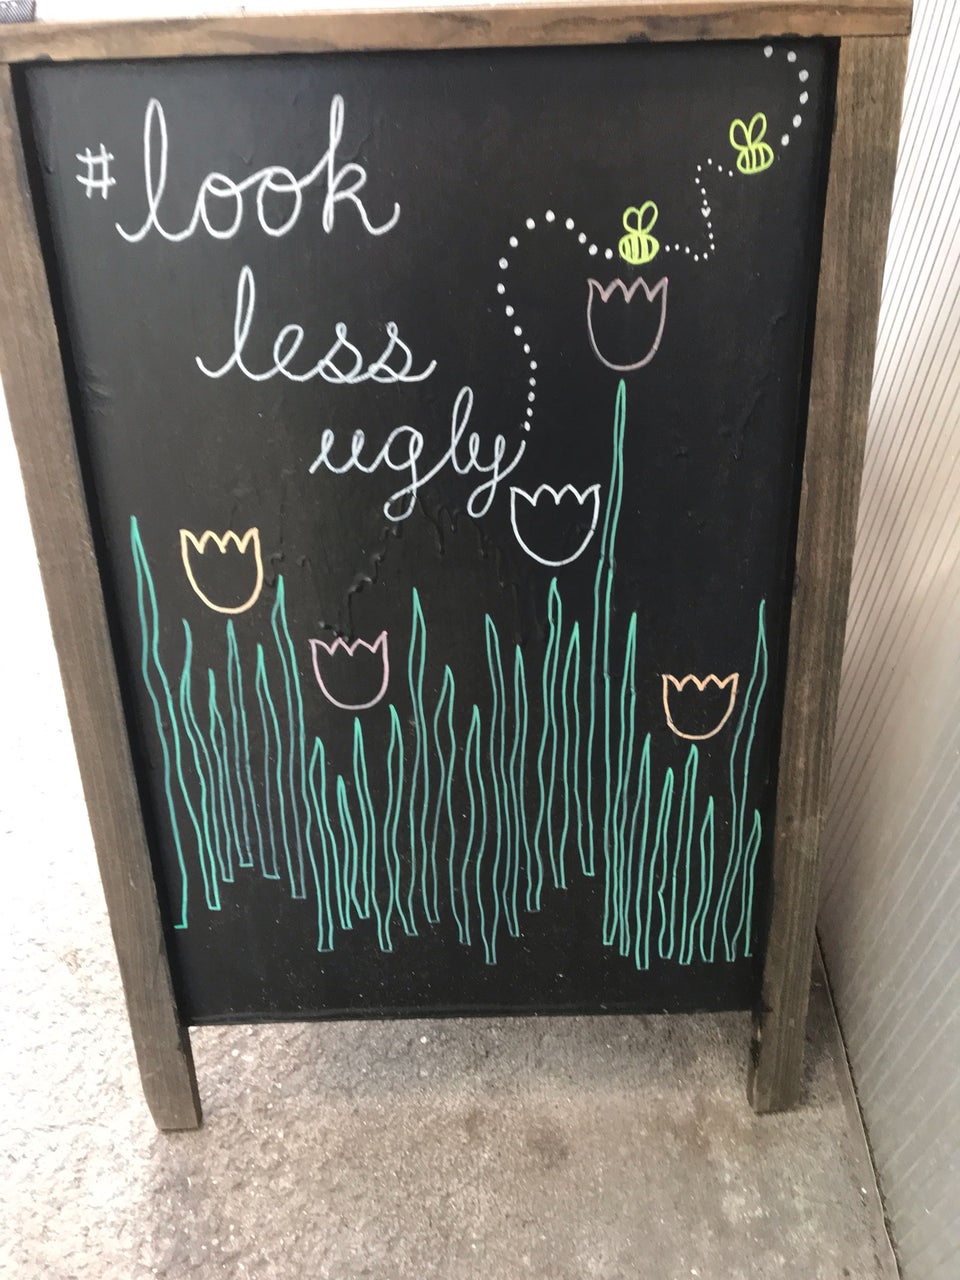 #look
less
ugly